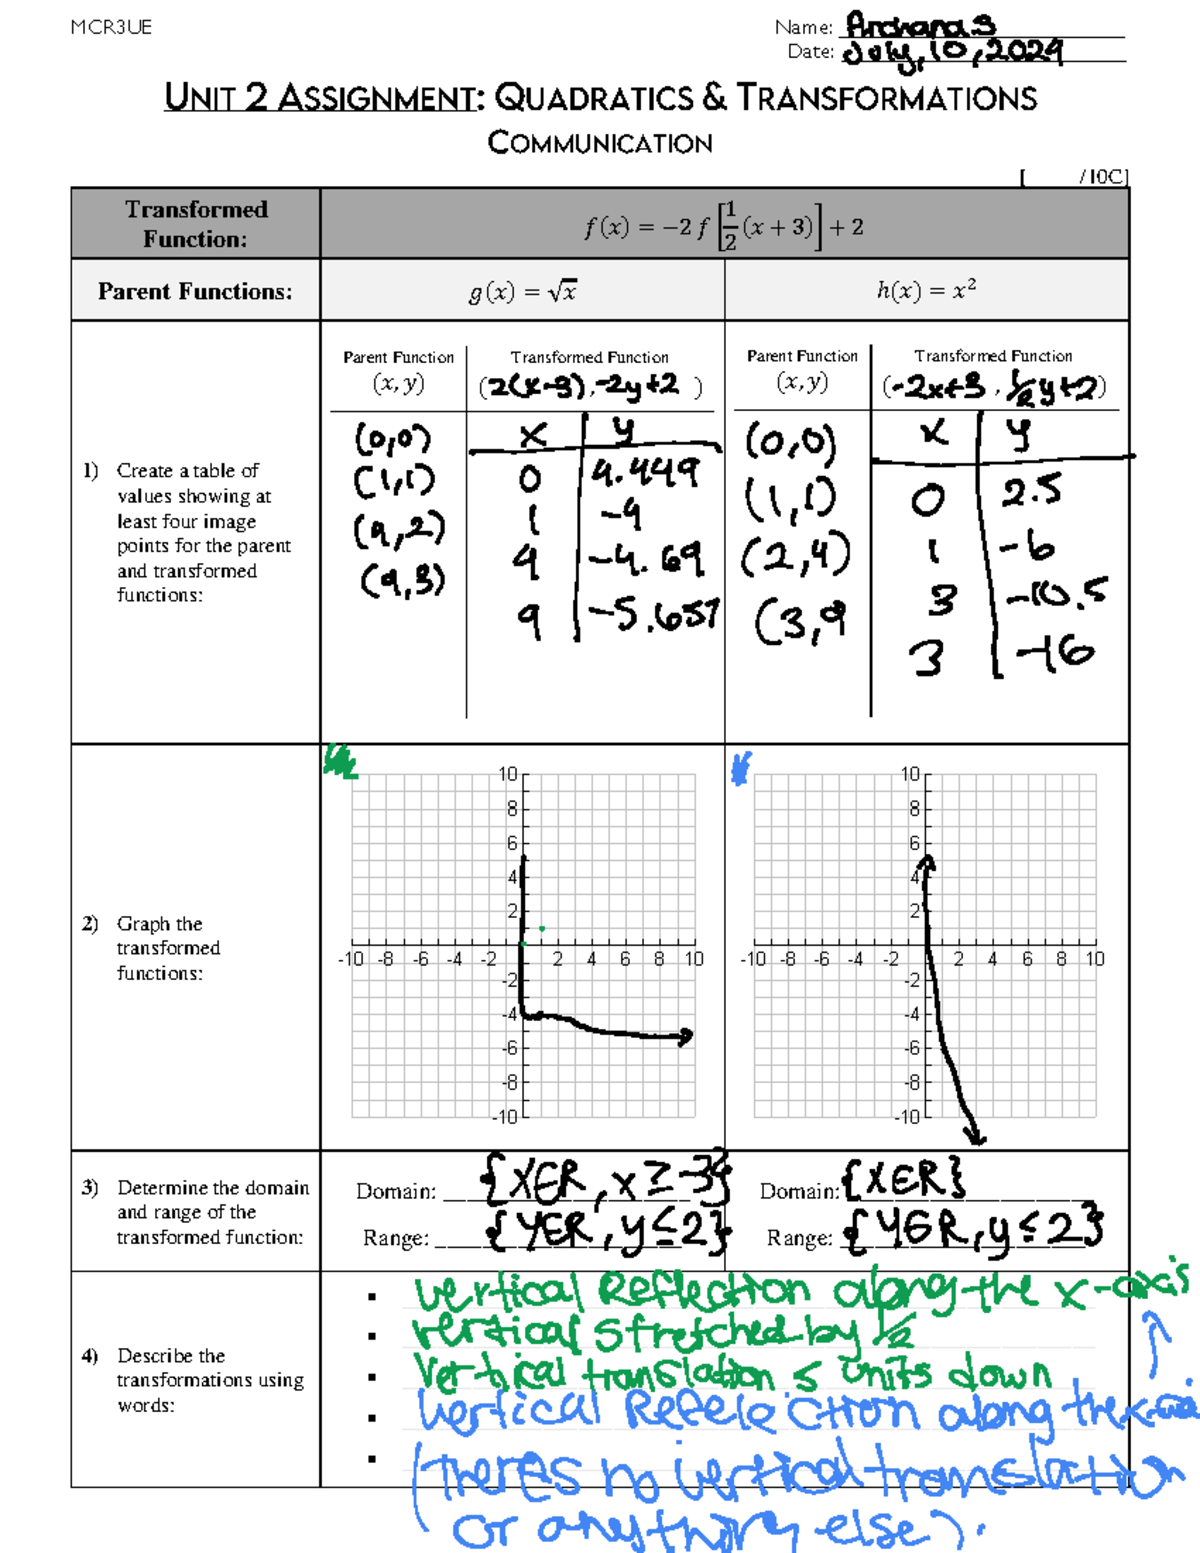 MCR3UE
Name: Archana S
Date: July, 10, 2024
UNIT 2 ASSIGNMENT: QUADRATICS & TRANSFORMATIONS
COMMUNICATION
[ /10C]
Transformed Function:
f(x) = −2 f [1/2 (x + 3)] + 2
Parent Functions:
g(x) = √x
h(x) = x²
1) Create a table of
values showing at
least four image
points for the parent
and transformed
functions:
Parent Function Transformed Function
(x, y) (2(x-3), -2y+2 )
x y
(0,0) 0 4.449
(1,1) 1 -4
(4,2) 4 -4.69
(9,3) 9 -5.657
Parent Function Transformed Function
(x, y) (-2x+3, 1/2y+2)
x y
(0,0) 0 2.5
(1,1) 1 -6
(2,4) 3 -10.5
(3,9 3 -16
2) Graph the
transformed
functions:
10
8
6
4
2
-10 -8 -6 -4 -2 2 4 6 8 10
-2
-4
-6
-8
-10
10
8
6
4
2
-10 -8 -6 -4 -2 2 4 6 8 10
-2
-4
-6
-8
-10
3) Determine the domain
and range of the
transformed function:
Domain: {XER, x ≥ -3}
Range: {YER, y ≤ 2}
Domain: {XER}
Range: {YER, y ≤ 2}
4) Describe the
transformations using
words:
▪ vertical Reflection along the x-axis
▪ vertical stretched by 1/2
▪ vertical translation 5 units down
▪ vertical Refelection along the x-axis
▪ (theres no vertical translation
or anything else).